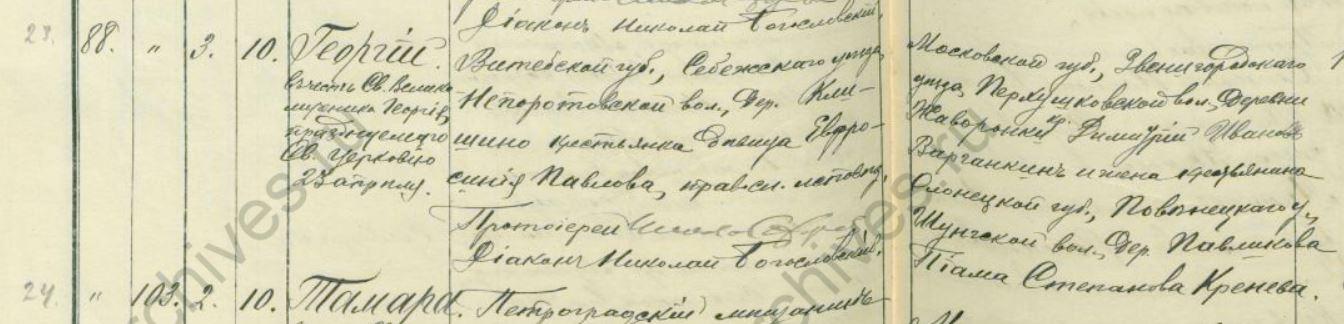 Діаконъ Николай Богословскій.
23. 88. " 3. 10. Георгій.
Въ честь Св. Велико-
мученика Георгія,
празднуемаго
Св. Церковію
23 апрѣля.
Витебской губ., Себежскаго уѣзда,
Непоротовской вол., дер. Кли-
шино крестьянка дѣвица Евфро-
синія Павлова, правосл. исповѣд.
Протоіерей
Діаконъ Николай Богословскій.
Московской губ., Звенигородскаго
уѣзда, Перхушковской вол., деревни
Жаворонки кр. Димитрій Ивановъ
Варганкинъ и жена крестьянина
Олонецкой губ., Повѣнецкаго у.,
Шунгской вол., дер. Павликова
Піама Степанова Кренева.
24. " 103. 2. 10. Тамара. Петроградскій мѣщанинъ
archives.ru
archives.ru